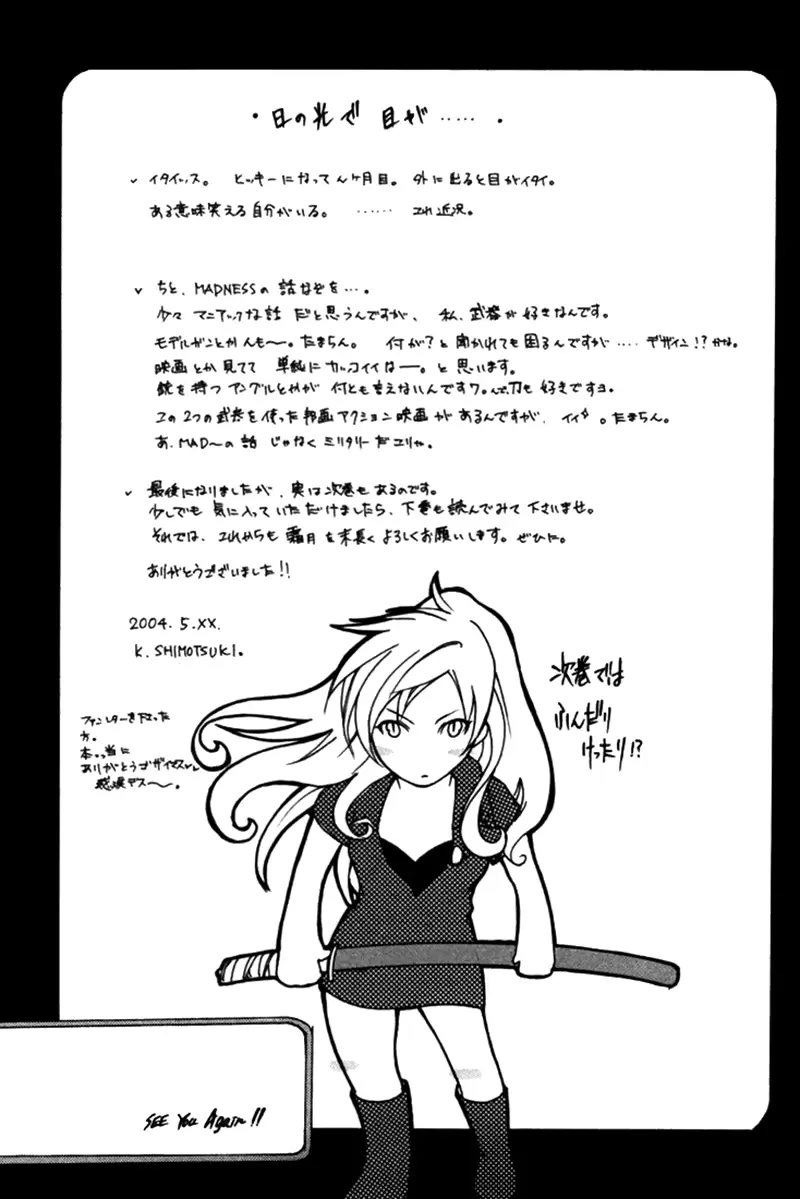 ・日の光で 目が…… .
✓ イタイッス。 ヒッキーになって んヶ月目。 外に出ると目がイタイ。
ある意味笑える自分がいる。 …… これ近況。
✓ ちと、MADNESSの 話などを…。
少々 マニアックな話 だと思うんですが、 私、武器が好きなんです。
モデルガンとか んも〜。たまらん。 何が?と 聞かれても困るんですが…. デザイン!? かな。
映画とか見てて 単純に カッコイイなー。と 思います。
銃を持つ アングルとかが 何とも言えないんですワ。んで刀も 好きですヨ。
この2つの武器を使った 邦画アクション映画 があるんですが、 イイ。たまらん。
あ、MAD〜の話 じゃなく ミリタリーだコリャ。
✓ 最後になりましたが、実は次巻も あるのです。
少しでも 気に入って いただけましたら、下巻も読んでみて 下さいませ。
それでは、これからも 霜月を末長く よろしくお願いします。ぜひに。
ありがとうございました!!
2004. 5. XX.
K. SHIMOTSUKI.
次巻では
ふんだり
けったり!?
ファンレターを下さった
方。
本っ当に
ありがとうゴザイマス
感涙デス〜。
SEE You Again!!